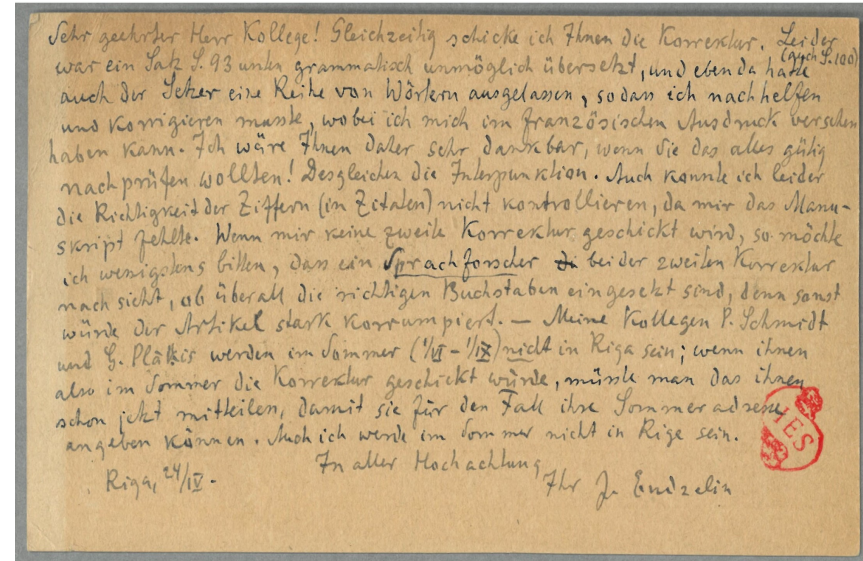 Sehr geehrter Herr Kollege! Gleichzeitig schicke ich Ihnen die Korrektur. Leider
war ein Satz S. 93 unten grammatisch unmöglich übersetzt, und eben da hatte (auch S. 100)
auch der Setzer eine Reihe von Wörtern ausgelassen, sodass ich nachhelfen
und korrigieren musste, wobei ich mich im französischen Ausdruck versehen
haben kann. Ich wäre Ihnen daher sehr dankbar, wenn Sie das alles gütig
nachprüfen wollten! Desgleichen die Interpunktion. Auch konnte ich leider
die Richtigkeit der Ziffern (in Zitaten) nicht kontrollieren, da mir das Manu-
skript fehlte. Wenn mir keine zweite Korrektur geschickt wird, so möchte
ich wenigstens bitten, dass ein Sprachforscher bei der zweiten Korrektur
nachsieht, ob überall die richtigen Buchstaben eingesetzt sind, denn sonst
würde der Artikel stark korrumpiert. — Meine Kollegen P. Schmidt
und G. Plāķis werden im Sommer (1/VI – 1/IX) nicht in Riga sein; wenn ihnen
also im Sommer die Korrektur geschickt würde, müsste man das ihnen
schon jetzt mitteilen, damit sie für den Fall ihre Sommeradresse
angeben können. Auch ich werde im Sommer nicht in Riga sein.
In aller Hochachtung
Riga, 24/IV. Ihr J. Endzelin
HES